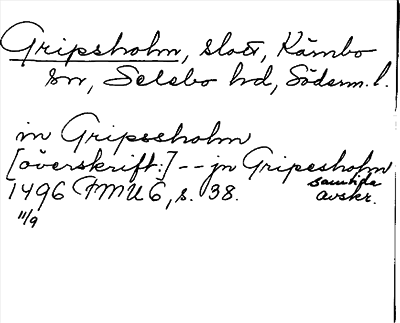 Gripsholm, slott, Kärnbo
sn, Selebo hd, Söderm. l.
in Gripssholm
[överskrift:] -- jn Gripessholm
1496 FMU 6, s. 38. samtida avskr.
11/9